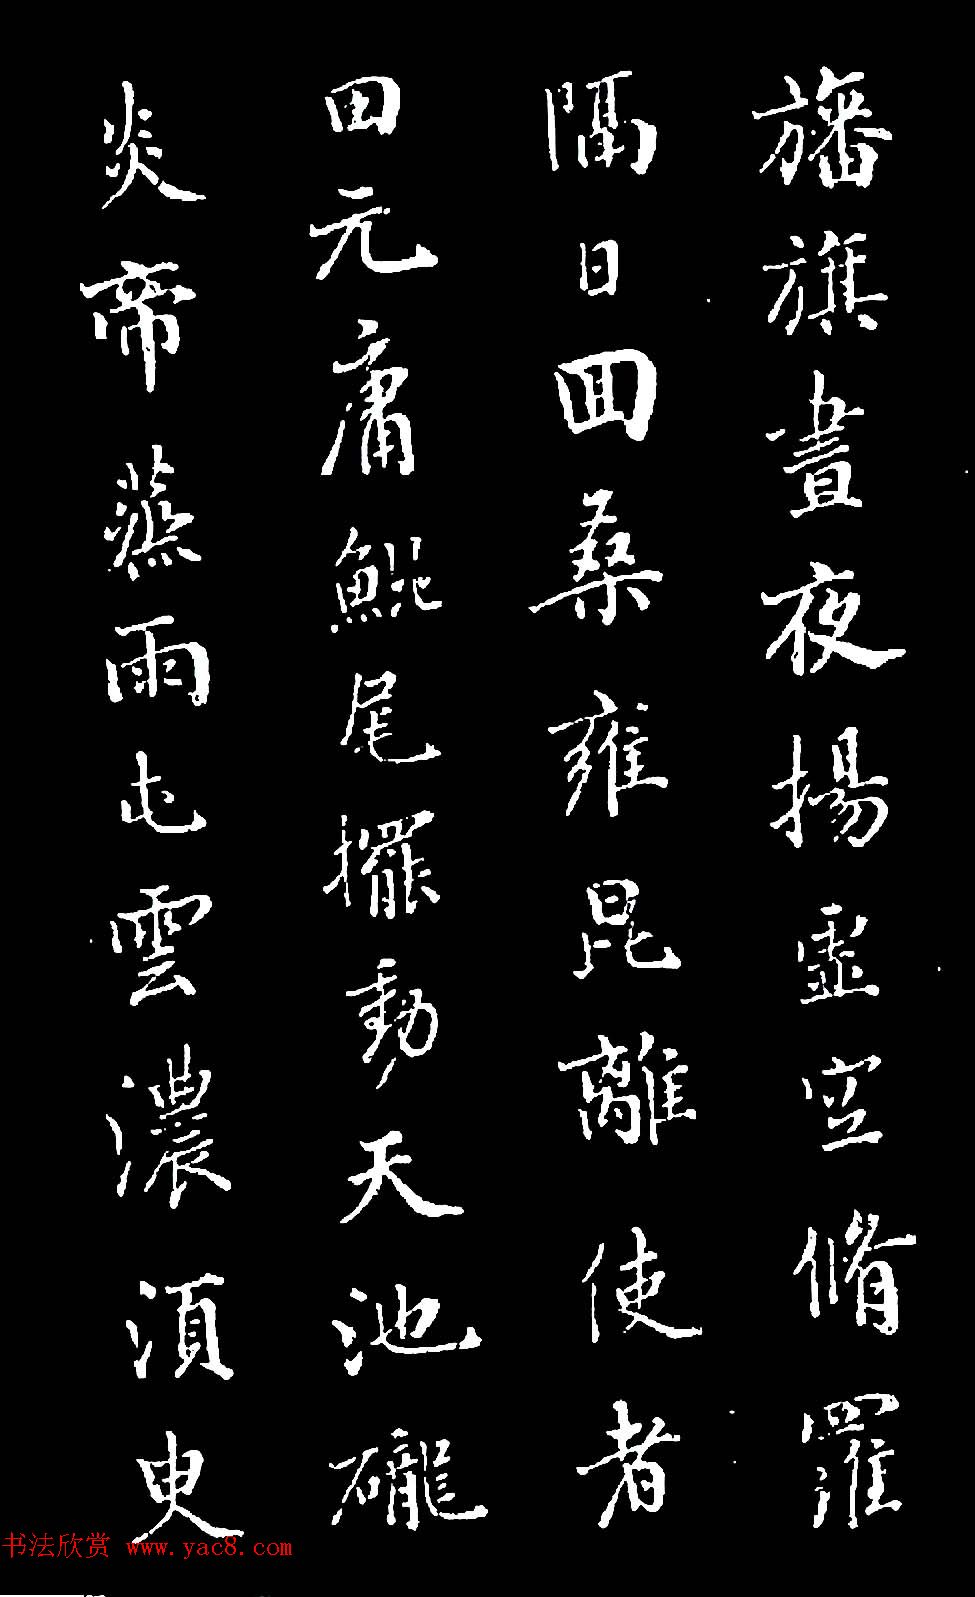 旛旗晝夜揚靈空脩羅
隔日回桑雍昆離使者
田元庸鯤尾擺動天池礲
炎帝蒸雨屯雲濃湏臾
书法欣赏 www.yac8.com